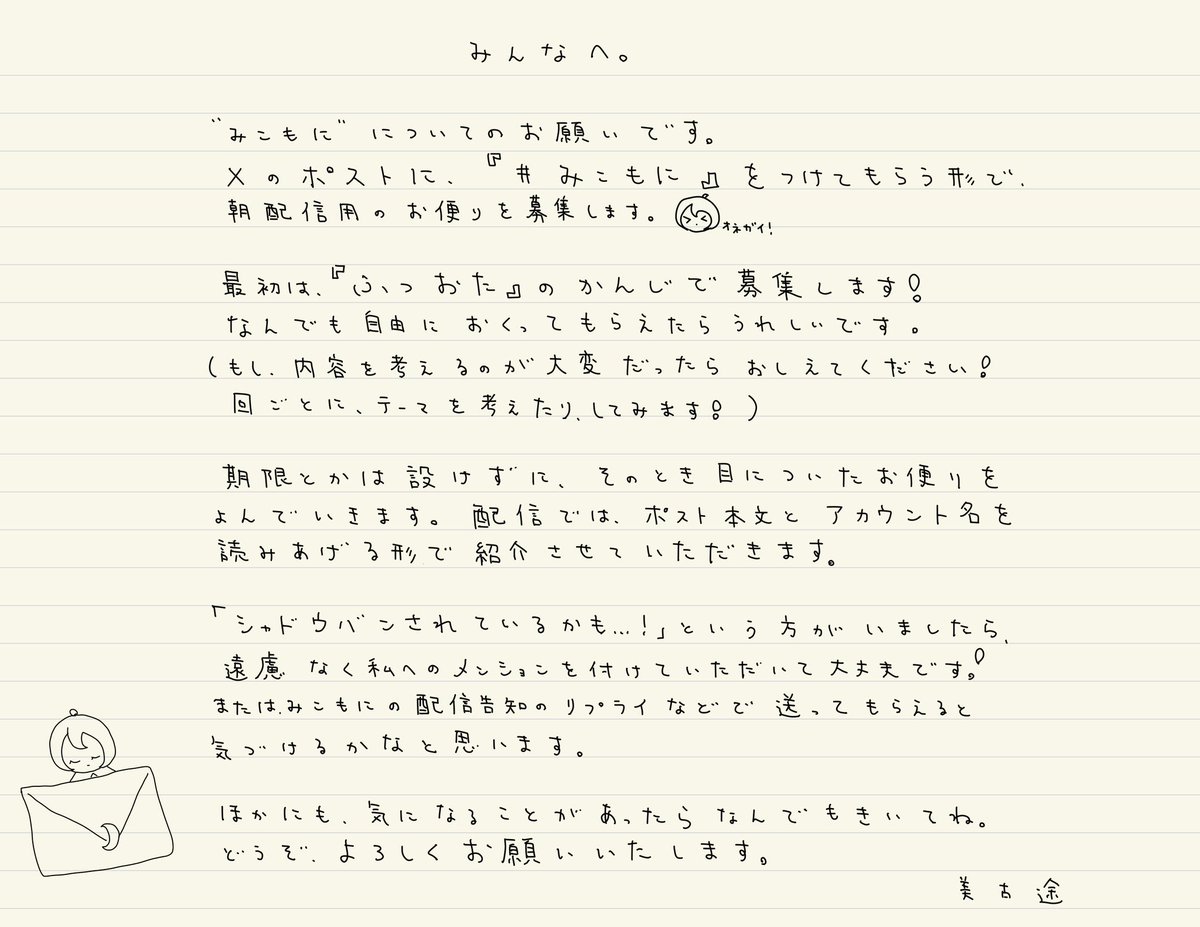 みんなへ。
"みこもに"についてのお願いです。
Xのポストに、『#みこもに』をつけてもらう形で、
朝配信用のお便りを募集します。
オネガイ!
最初は、『ふつおた』のかんじで募集します!
なんでも自由におくってもらえたらうれしいです。
(もし、内容を考えるのが大変だったらおしえてください!
回ごとに、テーマを考えたり、してみます!)
期限とかは設けずに、そのとき目についたお便りを
よんでいきます。配信では、ポスト本文とアカウント名を
読みあげる形で紹介させていただきます。
「シャドウバンされているかも...!」という方がいましたら、
遠慮なく私へのメンションを付けていただいて大丈夫です!
または、みこもにの配信告知のリプライなどで送ってもらえると
気づけるかなと思います。
ほかにも、気になることがあったらなんでもきいてね。
どうぞ、よろしくお願いいたします。
美古途